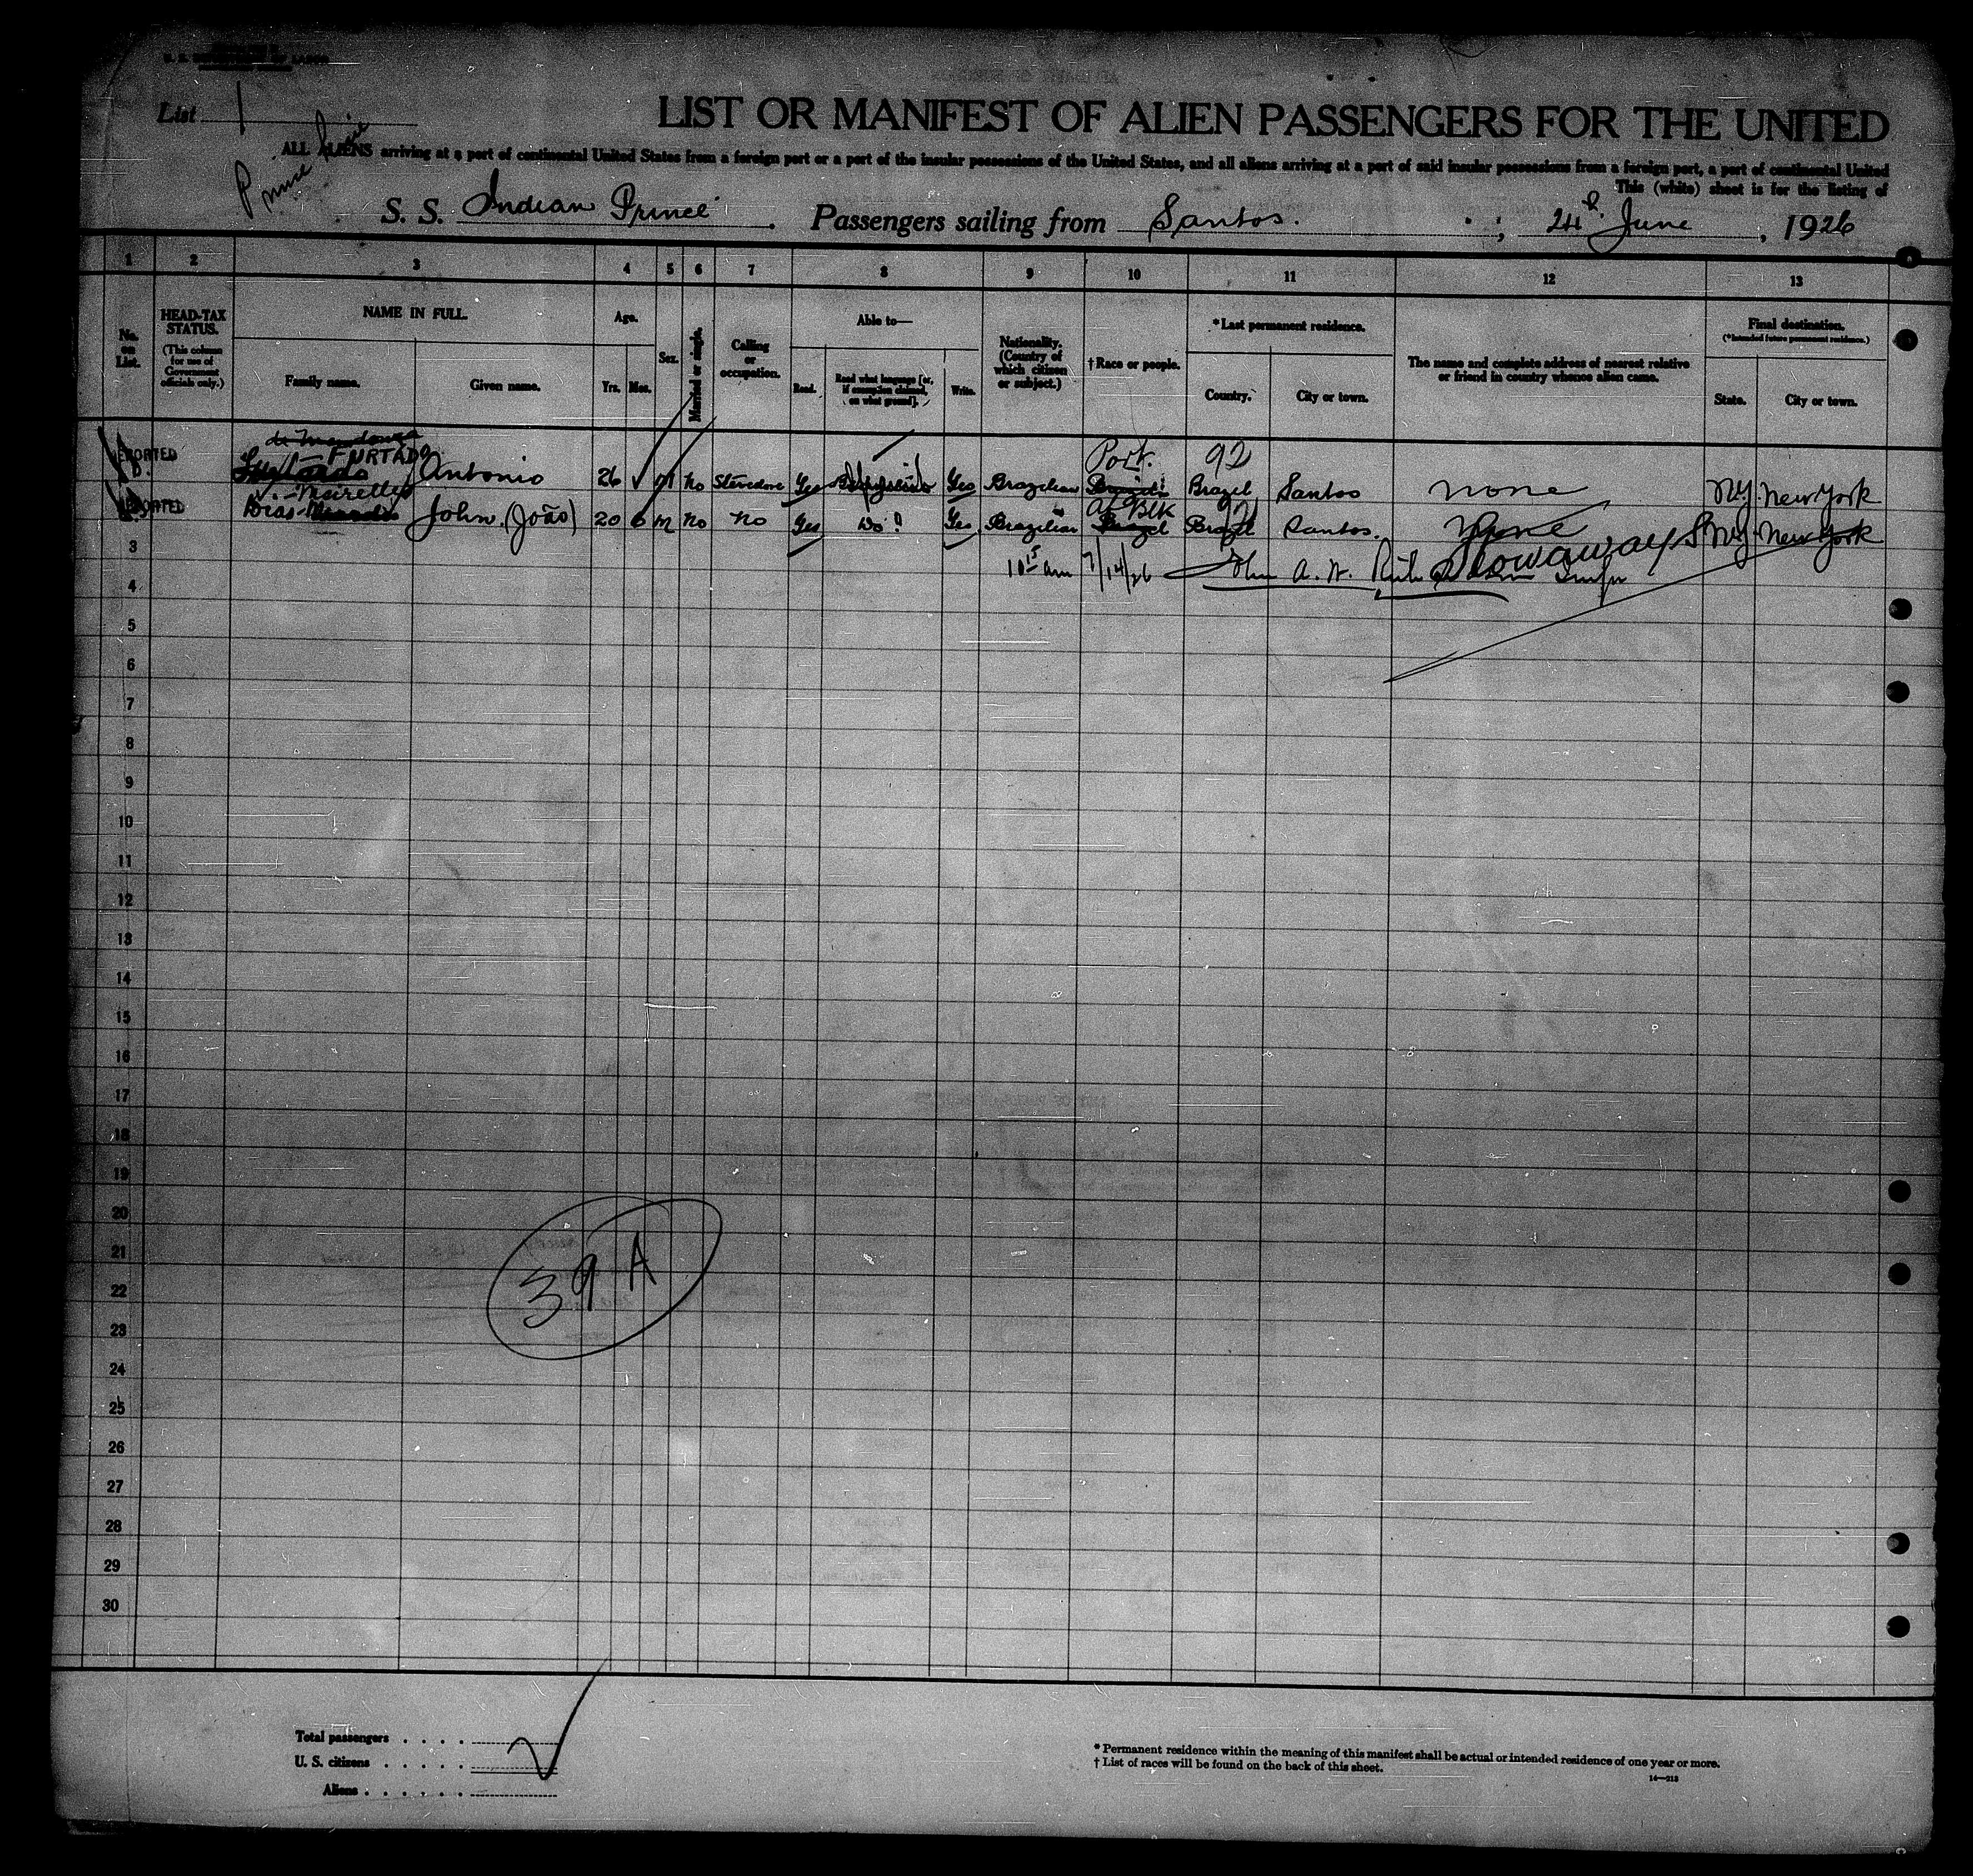 List 1
LIST OR MANIFEST OF ALIEN PASSENGERS FOR THE UNITED
ALL ALIENS arriving at a port of continental United States from a foreign port or a port of the insular possessions of the United States, and all aliens arriving at a port of said insular possessions from a foreign port, a port of continental United
This (white) sheet is for the listing of
Prince
S. S. Indian Prince. Passengers sailing from Santos. ; 24th June, 1926
1 2 3 4 5 6 7 8 9 10 11 12 13
No. on List.
HEAD-TAX STATUS. (This column for use of Government officials only.)
NAME IN FULL.
Family name. Given name.
Age.
Yrs. Mos.
Sex.
Married or single.
Calling or occupation.
Able to—
Read. Read what language [or, if exemption claimed, on what ground]. Write.
Nationality. (Country of which citizen or subject.)
†Race or people.
*Last permanent residence.
Country. City or town.
The name and complete address of nearest relative or friend in country whence alien came.
Final destination. (*Intended future permanent residence.)
State. City or town.
de Mendonca
FURTADO Antonio 26 M No Stevedore Yes Yes Brazilian Port. 92 Brazil Santos none N.Y. New York
Meirelles
Dias John (João) 20 6 M No No Yes Do Yes Brazilian Af Blk 92 Brazil Santos. None N.Y. New York
Stowaways
3
10 15 am 7/14/26 John A. W.
4
5
6
7
8
9
10
11
12
13
14
15
16
17
18
19
20
21
22
23
24
25
26
27
28
29
30
39 A
Total passengers . . . .
U. S. citizens . . . . .
Aliens . . . . . .
* Permanent residence within the meaning of this manifest shall be actual or intended residence of one year or more.
† List of races will be found on the back of this sheet.
14—213